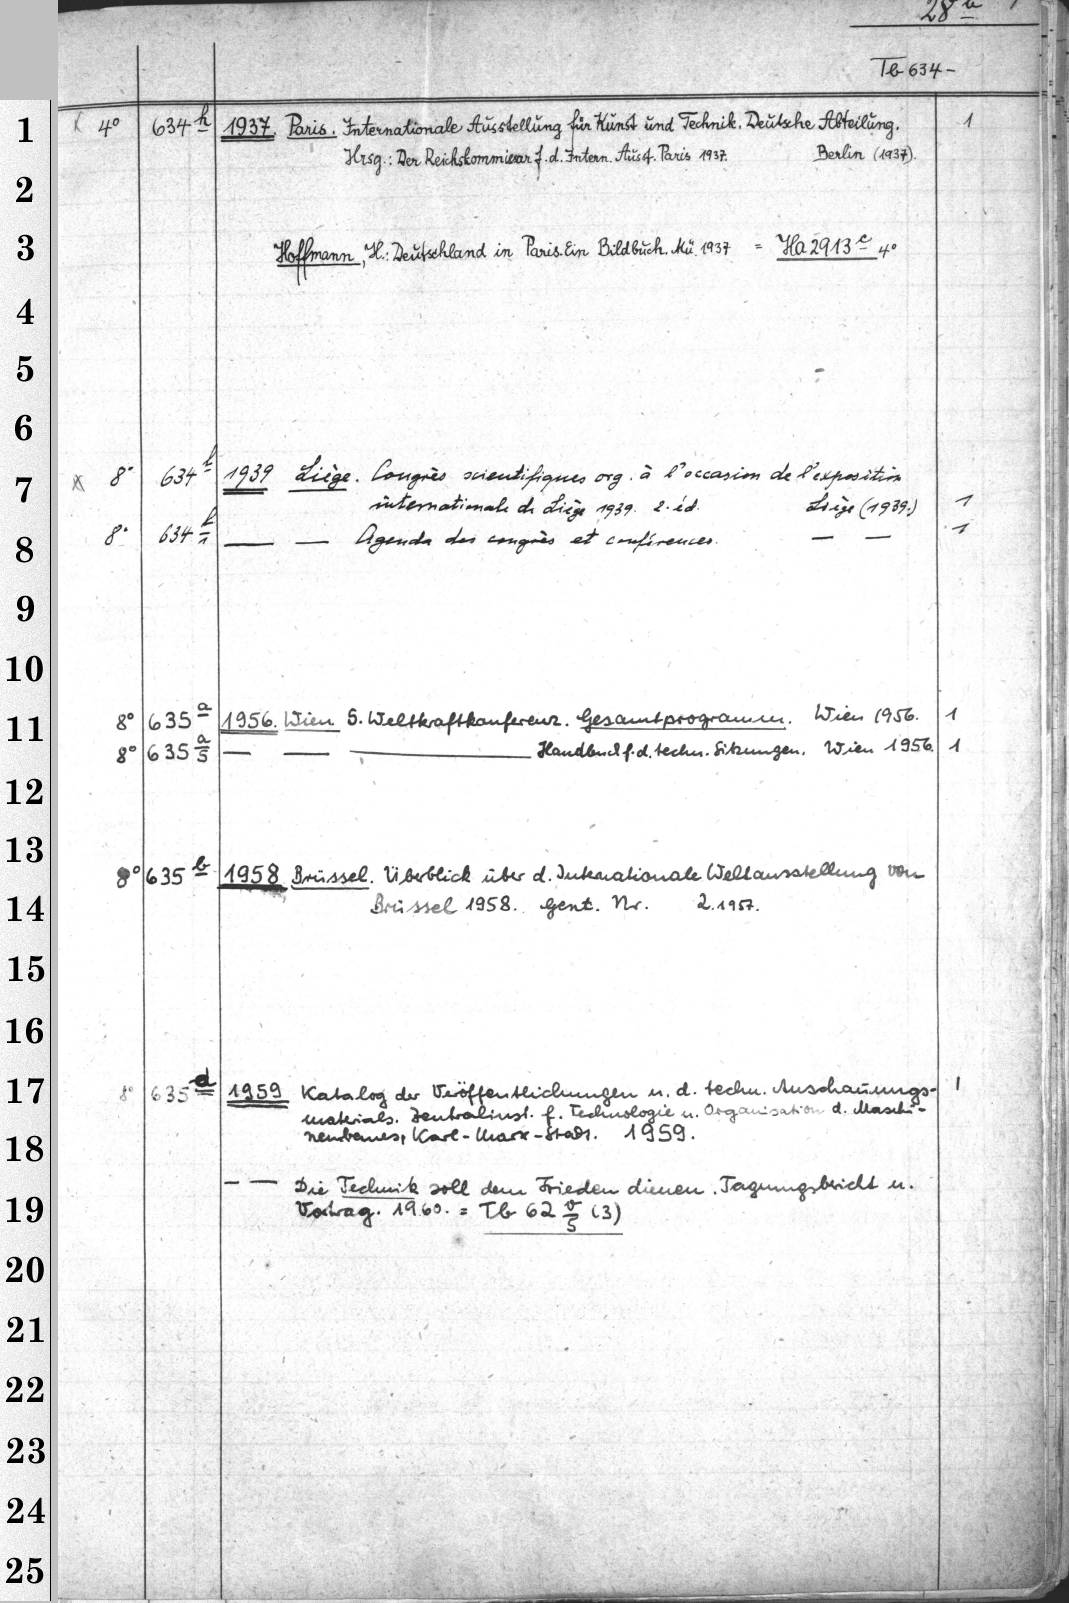 28 a
Tb 634-
1 4° 634 h 1937. Paris. Internationale Ausstellung für Kunst und Technik. Deutsche Abteilung. 1
Hrsg.: Der Reichskommissar f. d. Intern. Ausst. Paris 1937. Berlin (1937).
2
3 Hoffmann, H.: Deutschland in Paris. Ein Bildbuch. Mü. 1937 = Ha 2913 c 4°
4
5
6
7 8° 634 1939 Liège. Congrès scientifiques org. à l'occasion de l'exposition
internationale de Liège 1939. 2. éd. Liège (1939.) 1
8 8° 634 1 — — Agenda des congrès et conférences. — — 1
9
10
11 8° 635 a 1956. Wien 5. Weltkraftkonferenz. Gesamtprogramm. Wien 1956. 1
8° 635 a 5 — — — Handbuch f. d. techn. Sitzungen. Wien 1956. 1
12
13
8° 635 b 1958 Brüssel. Überblick über d. Internationale Weltausstellung von
14 Brüssel 1958. Gent. Nr. 2.1957.
15
16
17 8° 635 d 1959 Katalog der Veröffentlichungen u. d. techn. Anschauungs- 1
materials. Zentralinst. f. Technologie u. Organisation d. Maschi-
18 nenbaues, Karl-Marx-Stadt. 1959.
— — Die Technik soll dem Frieden dienen. Tagungsbericht u.
19 Vortrag. 1960. = Tb 62 v 5 (3)
20
21
22
23
24
25